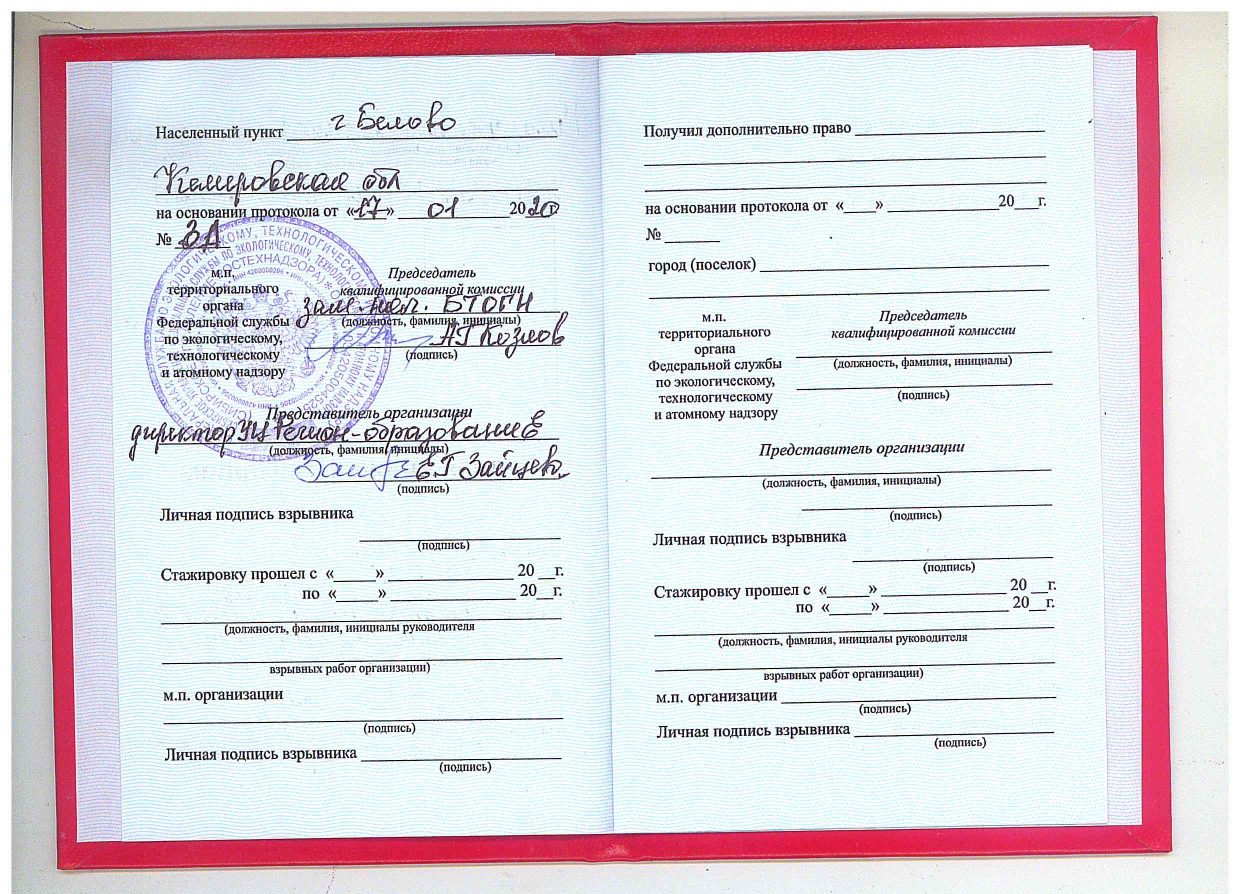 Населенный пункт г Белово
Кемеровская обл
на основании протокола от «17» 01 2020
№ 3А
м.п.
территориального
органа
Федеральной службы
по экологическому,
технологическому
и атомному надзору
Председатель
квалифицированной комиссии
зам. нач. БТОГН
(должность, фамилия, инициалы)
АГ Козлов
(подпись)
Представитель организации
директор УЦ Регион-образование
(должность, фамилия, инициалы)
ЕГ Зайцева
(подпись)
Личная подпись взрывника
(подпись)
Стажировку прошел с «_____» _______________ 20 __г.
по «_____» _______________ 20__г.
(должность, фамилия, инициалы руководителя
взрывных работ организации)
м.п. организации
(подпись)
Личная подпись взрывника
(подпись)
Получил дополнительно право
на основании протокола от «____» _____________20___г.
№ _______
город (поселок)
м.п.
территориального
органа
Федеральной службы
по экологическому,
технологическому
и атомному надзору
Председатель
квалифицированной комиссии
(должность, фамилия, инициалы)
(подпись)
Представитель организации
(должность, фамилия, инициалы)
(подпись)
Личная подпись взрывника
(подпись)
Стажировку прошел с «_____» _______________ 20 __г.
по «_____» _______________ 20__г.
(должность, фамилия, инициалы руководителя
взрывных работ организации)
м.п. организации
(подпись)
Личная подпись взрывника
(подпись)